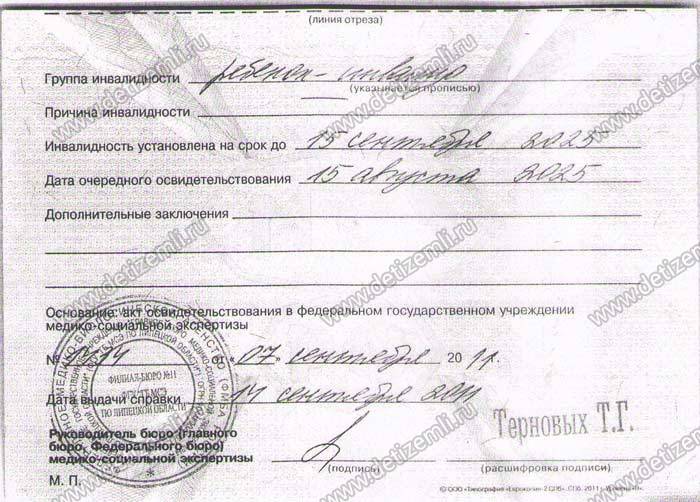 (линия отреза)
Группа инвалидности ребенок-инвалид
(указывается прописью)
Причина инвалидности
Инвалидность установлена на срок до 15 сентября 2025
Дата очередного освидетельствования 15 августа 2025
Дополнительные заключения
Основание: акт освидетельствования в федеральном государственном учреждении
медико-социальной экспертизы
№ от «07» сентября 2011 г.
Дата выдачи справки 14 сентября 2011
Руководитель бюро (главного
бюро, Федерального бюро)
медико-социальной экспертизы
Терновых Т.Г.
(подпись) (расшифровка подписи)
М. П.
ФИЛИАЛ-БЮРО №11
ПО ЛИПЕЦКОЙ ОБЛАСТИ
www.detizemli.ru